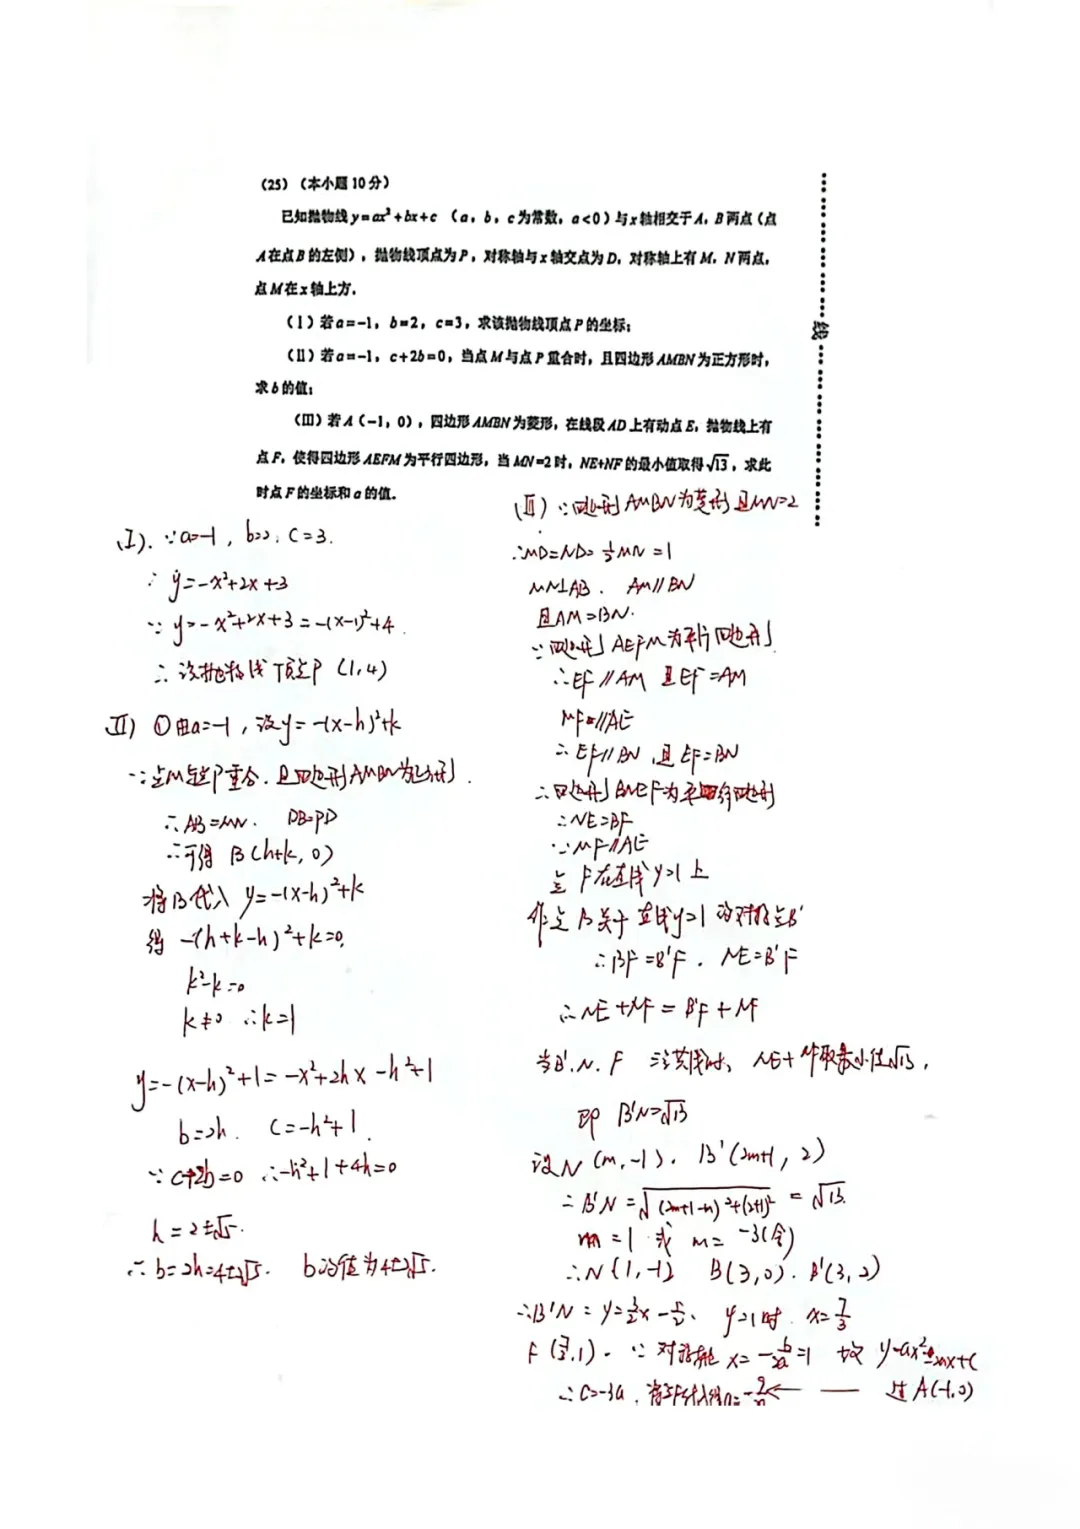 (25)（本小题10分）
已知抛物线y=ax²+bx+c （a，b，c为常数，a<0）与x轴相交于A，B两点（点
A在点B的左侧），抛物线顶点为P，对称轴与x轴交点为D，对称轴上有M，N两点，
点M在x轴上方．
（Ⅰ）若a=-1，b=2，c=3，求该抛物线顶点P的坐标；
（Ⅱ）若a=-1，c+2b=0，当点M与点P重合时，且四边形AMBN为正方形时，
求b的值；
（Ⅲ）若A（-1，0），四边形AMBN为菱形，在线段AD上有动点E，抛物线上有
点F，使得四边形AEFM为平行四边形，当MN=2时，NE+NF的最小值取得√13，求此
时点F的坐标和a的值．
线
(Ⅰ). ∵a=-1, b=2, c=3.
∴ y=-x²+2x+3
∵ y=-x²+2x+3=-(x-1)²+4
∴ 该抛物线顶点P (1,4)
Ⅱ) ①由a=-1, 设y=-(x-h)²+k
∵点M与点P重合. 且四边形AMBN为正方形.
∴AB=MN. DB=PD
∴可得 B(h+k, 0)
将B代入 y=-(x-h)²+k
得 -(h+k-h)²+k=0,
k²-k=0
k≠0 ∴k=1
y=-(x-h)²+1=-x²+2hx-h²+1
b=2h. c=-h²+1.
∵c+2b=0 ∴-h²+1+4h=0
h=2±√5.
∴b=2h=4±2√5. b的值为4±2√5.
(Ⅲ) ∵四边形AMBN为菱形且MN=2
∴MD=ND=½MN=1
MN⊥AB. AM∥BN
且AM=BN.
∵四边形AEFM为平行四边形
∴EF∥AM 且EF=AM
MF=∥AE
∴EF∥BN, 且EF=BN
∴四边形BNEF为平行四边形
∴NE=BF
∵MF∥AE
点F在直线y=1上
作点B关于直线y=1的对称点B'
∴BF=B'F. NE=B'F
∴NE+NF=B'F+NF
当B'.N.F三点共线时, NE+NF取最小值√13,
即 B'N=√13
设N(m,-1). B'(2m+1, 2)
∴B'N=√(2m+1-m)²+(2+1)²=√13.
m=1 或 m=-3(舍)
∴N(1,-1) B(3,0). B'(3,2)
∴B'N: y=3/2x-5/2, y=1时. x=7/3
F(7/3,1). ∵对称轴x=-b/2a=1 故 y=ax²-2ax+c
过A(-1,0)